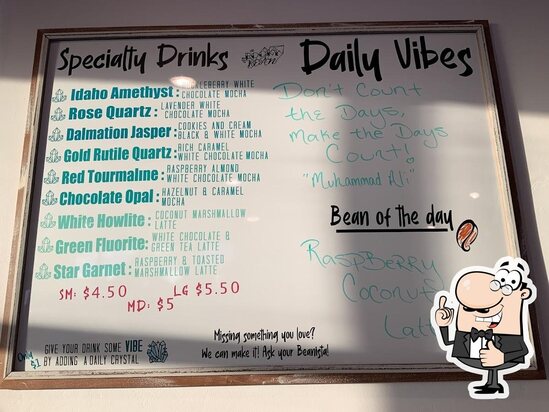 Specialty Drinks
Idaho Amethyst: HUCKLEBERRY WHITE
CHOCOLATE MOCHA
Rose Quartz: LAVENDER WHITE
CHOCOLATE MOCHA
Dalmation Jasper: COOKIES AND CREAM
BLACK & WHITE MOCHA
Gold Rutile Quartz: RICH CARAMEL
WHITE CHOCOLATE MOCHA
Red Tourmaline: RASPBERRY ALMOND
WHITE CHOCOLATE MOCHA
Chocolate Opal: HAZELNUT & CARAMEL
MOCHA
White Howlite: COCONUT MARSHMALLOW
LATTE
Green Fluorite: WHITE CHOCOLATE &
GREEN TEA LATTE
Star Garnet: RASPBERRY & TOASTED
MARSHMALLOW LATTE
SM: $4.50
MD: $5
LG $5.50
Only $1
GIVE YOUR DRINK SOME VIBE
BY ADDING A DAILY CRYSTAL
Daily Vibes
Don't Count
the Days,
Make the Days
Count!
"Muhammad Ali"
Bean of the day
RASPBERRY
Coconut
Missing something you love?
We can make it! Ask your Beanista!